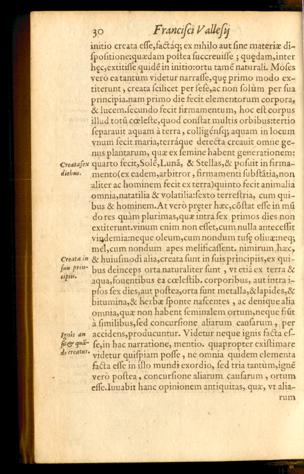 30 Francisci Vallesij
initio creata esse, factáq; ex nihilo aut sine materiæ di-
spositione: quædam postea succreuisse; quędam, inter
hęc, extitisse quidē in initio: ortu tamē naturali. Moses
verò ea tantùm videtur narrasse, quę primo modo ex-
titerunt, creata scilicet per sese, ac non solùm per sua
principia. nam primo die fecit elementorum corpora,
& lucem. secundo fecit firmamentum, hoc est corpus
illud totū cœleste, quod constat multis orbibus. tertio
separauit aquam à terra, colligēnsq; aquam in locum
vnum fecit maria, terráque detecta creauit omne ge-
nus plantarum, quæ ex semine habent generationem:
Creata sex
diebus.
quarto fecit, Solē, Lunā, & Stellas, & posuit in firma-
mento (ex eadem, arbitror, firmamenti substātia, non
aliter ac hominem fecit ex terra) quinto fecit animalia
omnia, natatilia & volatilia: sexto terrestria, cum qui-
bus & hominem. At verò pręter hæc, cōstat esse in mū
do res quàm plurimas, quæ intra sex primos dies non
extiterunt. vinum enim non esset, cum nulla antecessit
vindemia: neque oleum, cum nondum tusę oliuæ: neq;
mel, cum nondum apes mellificassent. nimirum, hæc,
Creata in
suis prin-
cipiis.
& huiusmodi alia, creata sunt in suis principiis, ex qui-
bus deinceps orta naturaliter sunt, vt etiā ex terra &
aqua, fouentibus ea cœlestib. corporibus, aut intra i-
psos sex dies, aut postea, orta sunt metalla, & lapides, &
bitumina, & herbæ sponte nascentes, ac denique alia
omnia, quæ non habent seminalem ortum, neque fiūt
à similibus, sed concursione aliarum causarum, per
Ignis an
sit & quā-
do creatus.
accidens, producuntur. Videtur neque ignis facta es-
se, in hac narratione, mentio. quapropter existimare
videtur quispiam posse, ne omnia quidem elementa
facta esse in illo mundi exordio, sed tria tantùm, ignē
verò postea, concursione aliarum causarum, ortum
esse. Iuuabit hanc opinionem antiquitas, quæ, vt alia-
rum